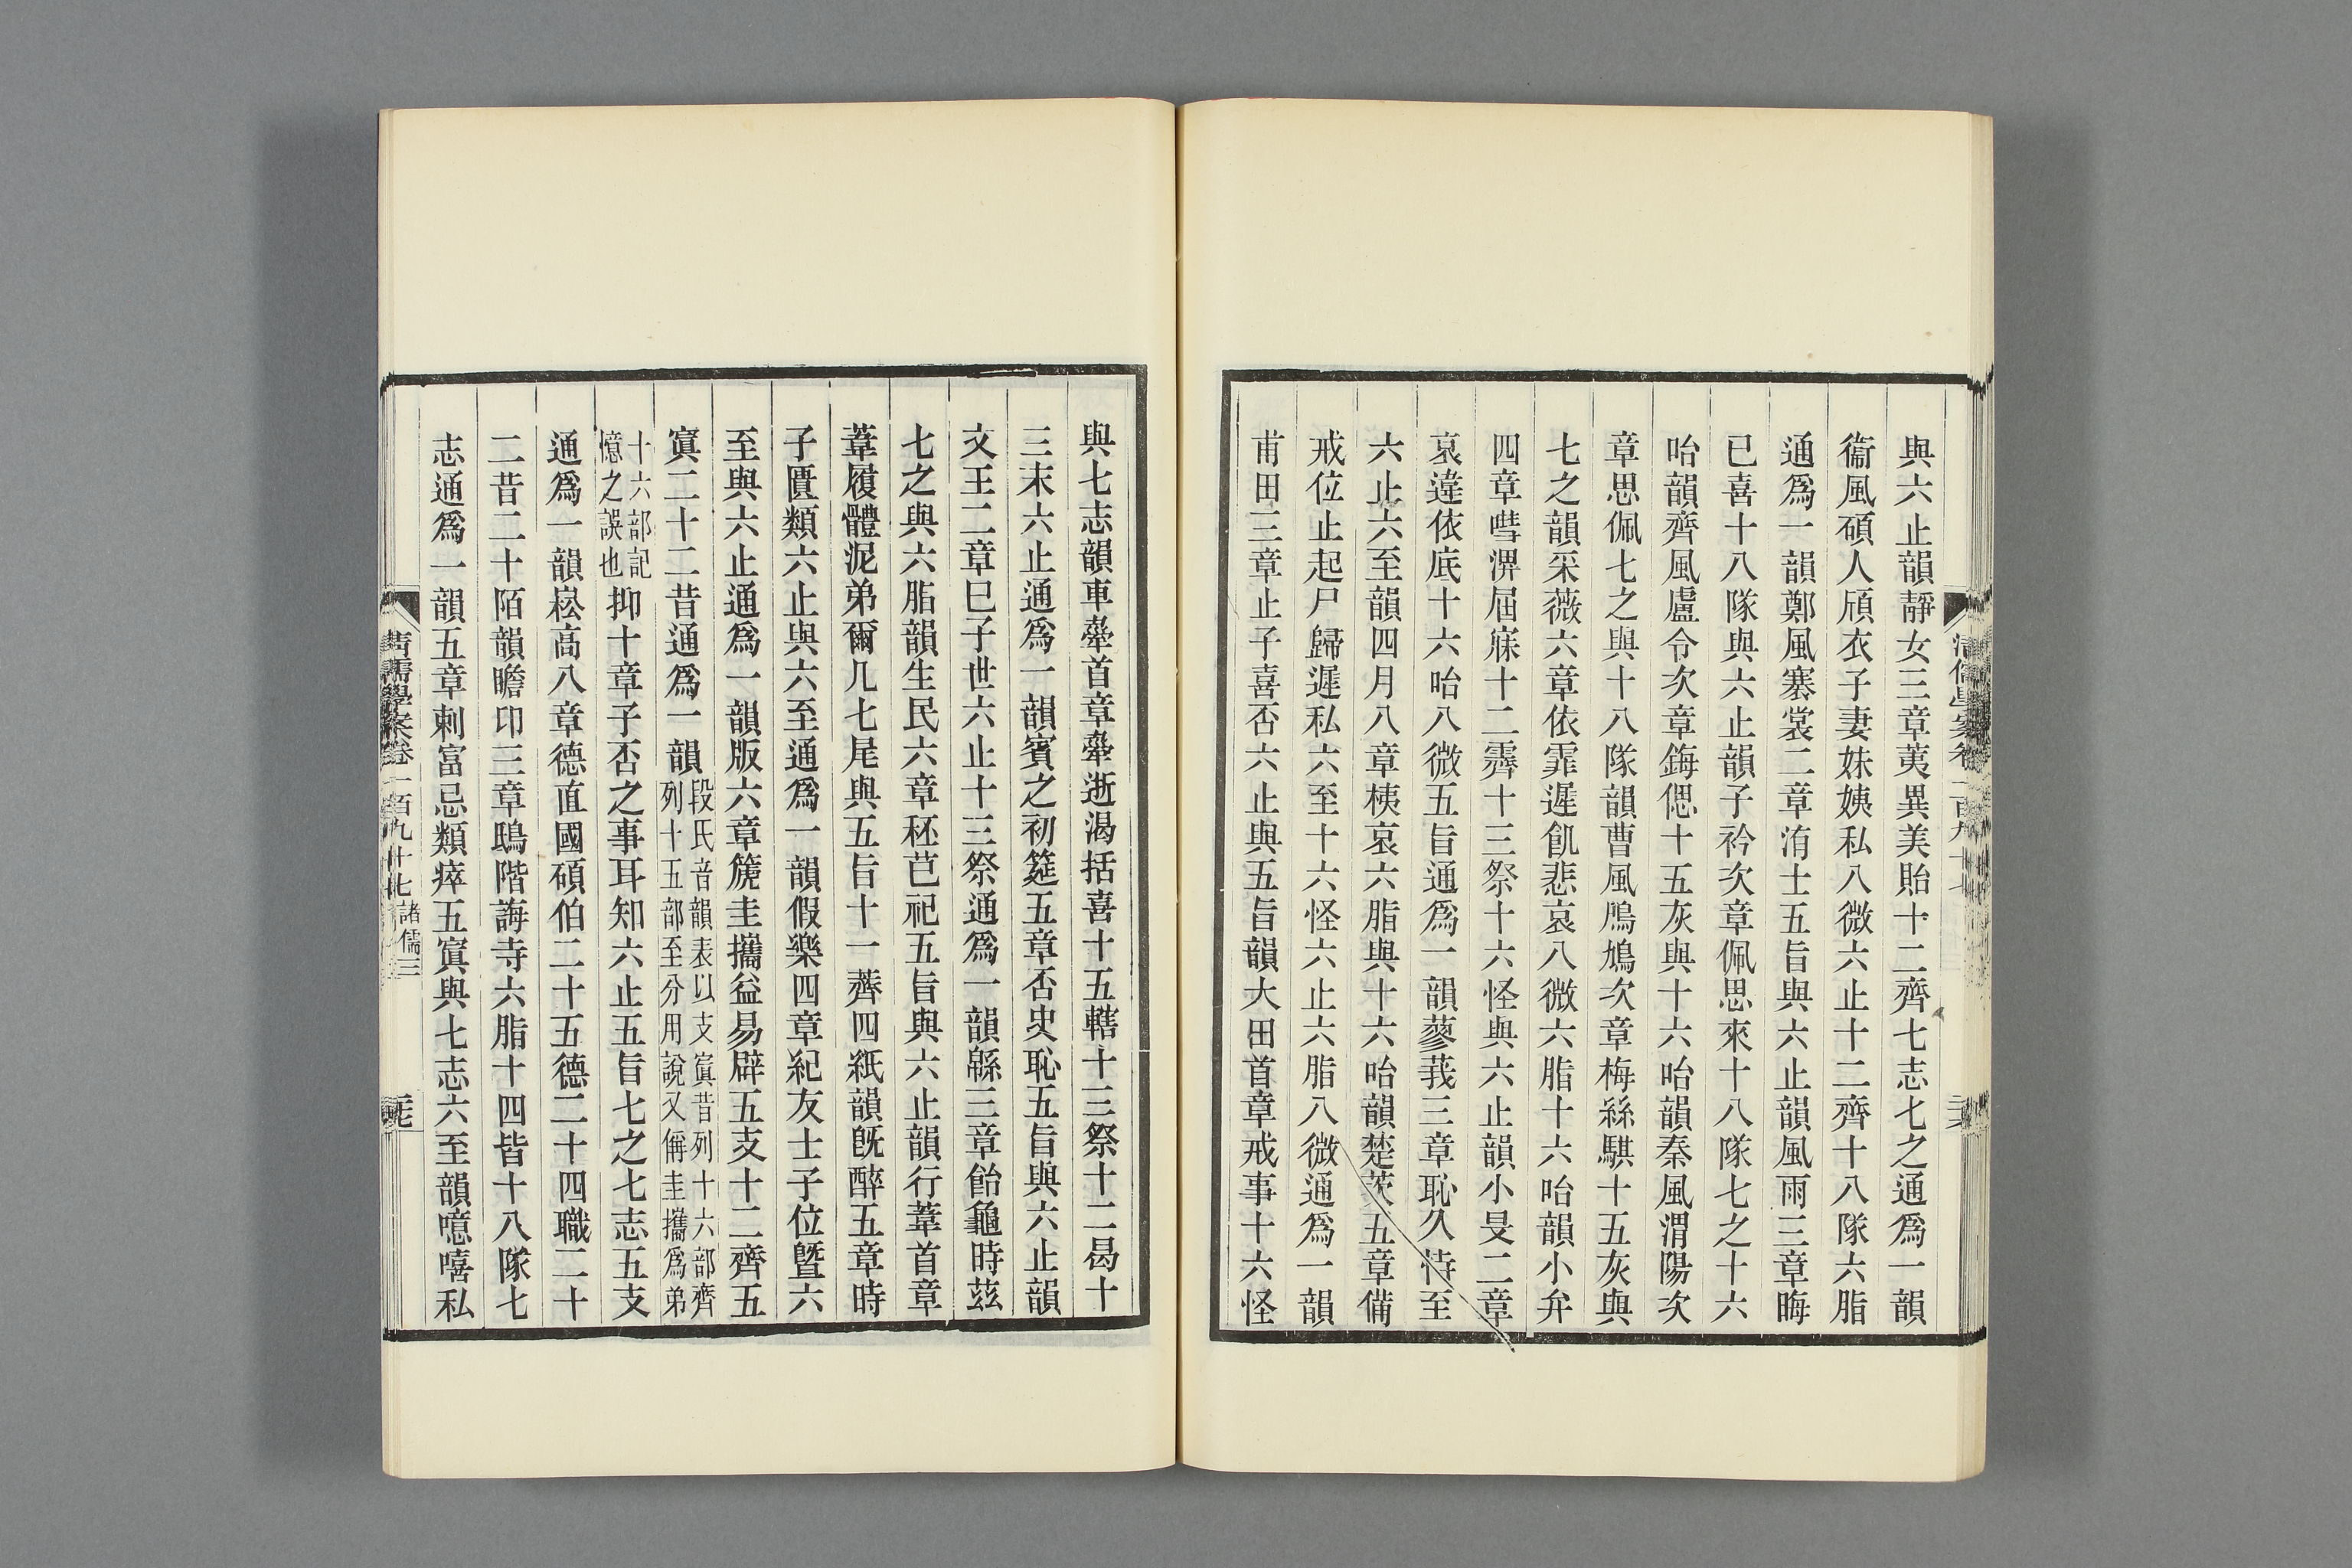 與六止韻靜女三章荑異美貽十二齊七志七之通爲一韻
衞風碩人頎衣子妻妹姨私八微六止十二齊十八隊六脂
通爲一韻鄭風褰裳二章洧士五旨與六止韻風雨三章晦
已喜十八隊與六止韻子衿次章佩思來十八隊七之十六
咍韻齊風盧令次章鋂偲十五灰與十六咍韻秦風渭陽次
章思佩七之與十八隊韻曹風鳲鳩次章梅絲騏十五灰與
七之韻采薇六章依霏遲飢悲哀八微六脂十六咍韻小弁
四章嘒淠屆寐十二霽十三祭十六怪與六止韻小旻二章
哀違依底十六咍八微五旨通爲一韻蓼莪三章恥久恃至
六止六至韻四月八章桋哀六脂與十六咍韻楚茨五章備
戒位止起尸歸遲私六至十六怪六止六脂八微通爲一韻
甫田三章止子喜否六止與五旨韻大田首章戒事十六怪
清儒學案卷一百九十七 諸儒三
與七志韻車舝首章舝逝渴括喜十五轄十三祭十二曷十
三末六止通爲一韻賓之初筵五章否史恥五旨與六止韻
文王二章已子世六止十三祭通爲一韻緜三章飴龜時茲
七之與六脂韻生民六章秠芑祀五旨與六止韻行葦首章
葦履體泥弟爾几七尾與五旨十一薺四紙韻旣醉五章時
子匱類六止與六至通爲一韻假樂四章紀友士子位曁六
至與六止通爲一韻版六章篪圭攜益易辟五支十二齊五
寘二十二昔通爲一韻段氏音韻表以支寘昔列十六部齊
列十五部至分用說又偁圭攜爲弟
十六部記
憶之誤也抑十章子否之事耳知六止五旨七之七志五支
通爲一韻崧高八章德直國碩伯二十五德二十四職二十
二昔二十陌韻瞻卬三章鴟階誨寺六脂十四皆十八隊七
志通爲一韻五章刺富忌類瘁五寘與七志六至韻噫嘻私
清儒學案卷一百九十七 諸儒三